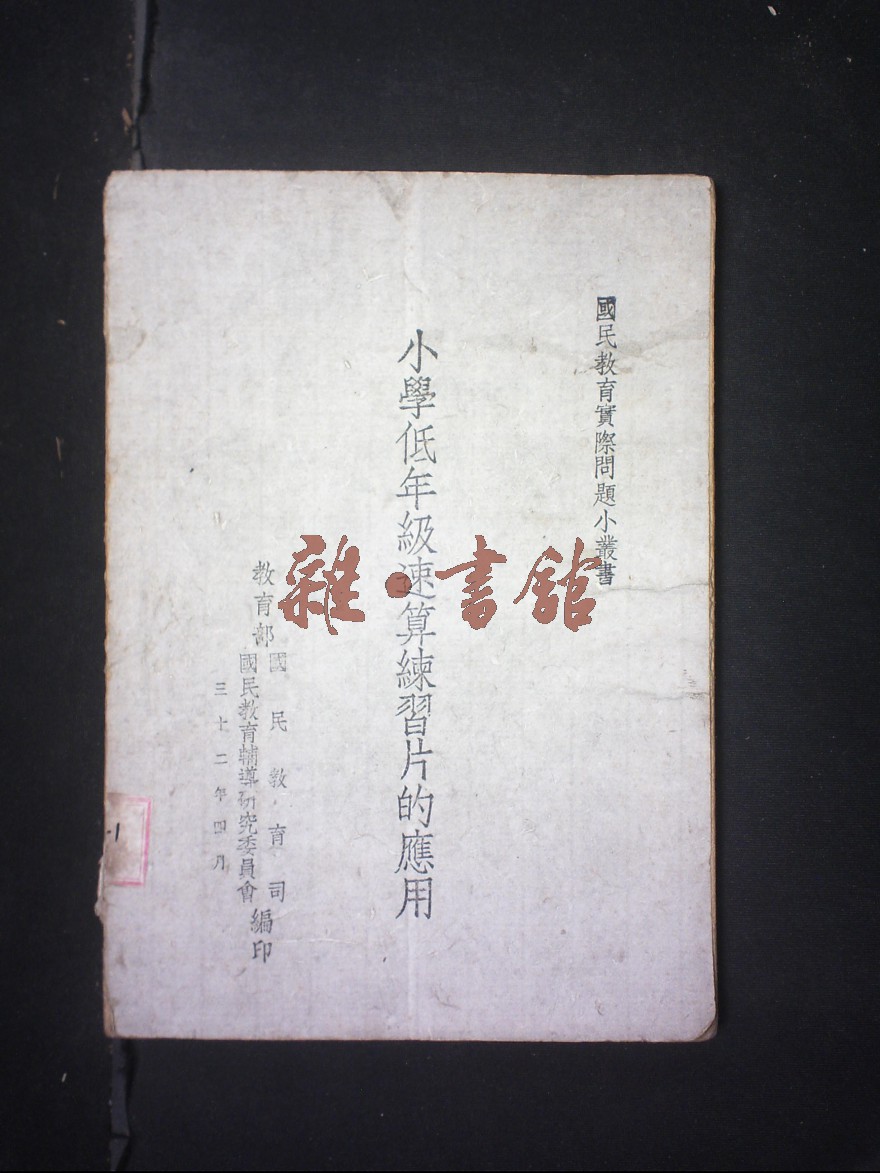 國民教育實際問題小叢書
小學低年級速算練習片的應用
教育部
國民教育司
國民教育輔導研究委員會
編印
三十二年四月
雜·書館
-1